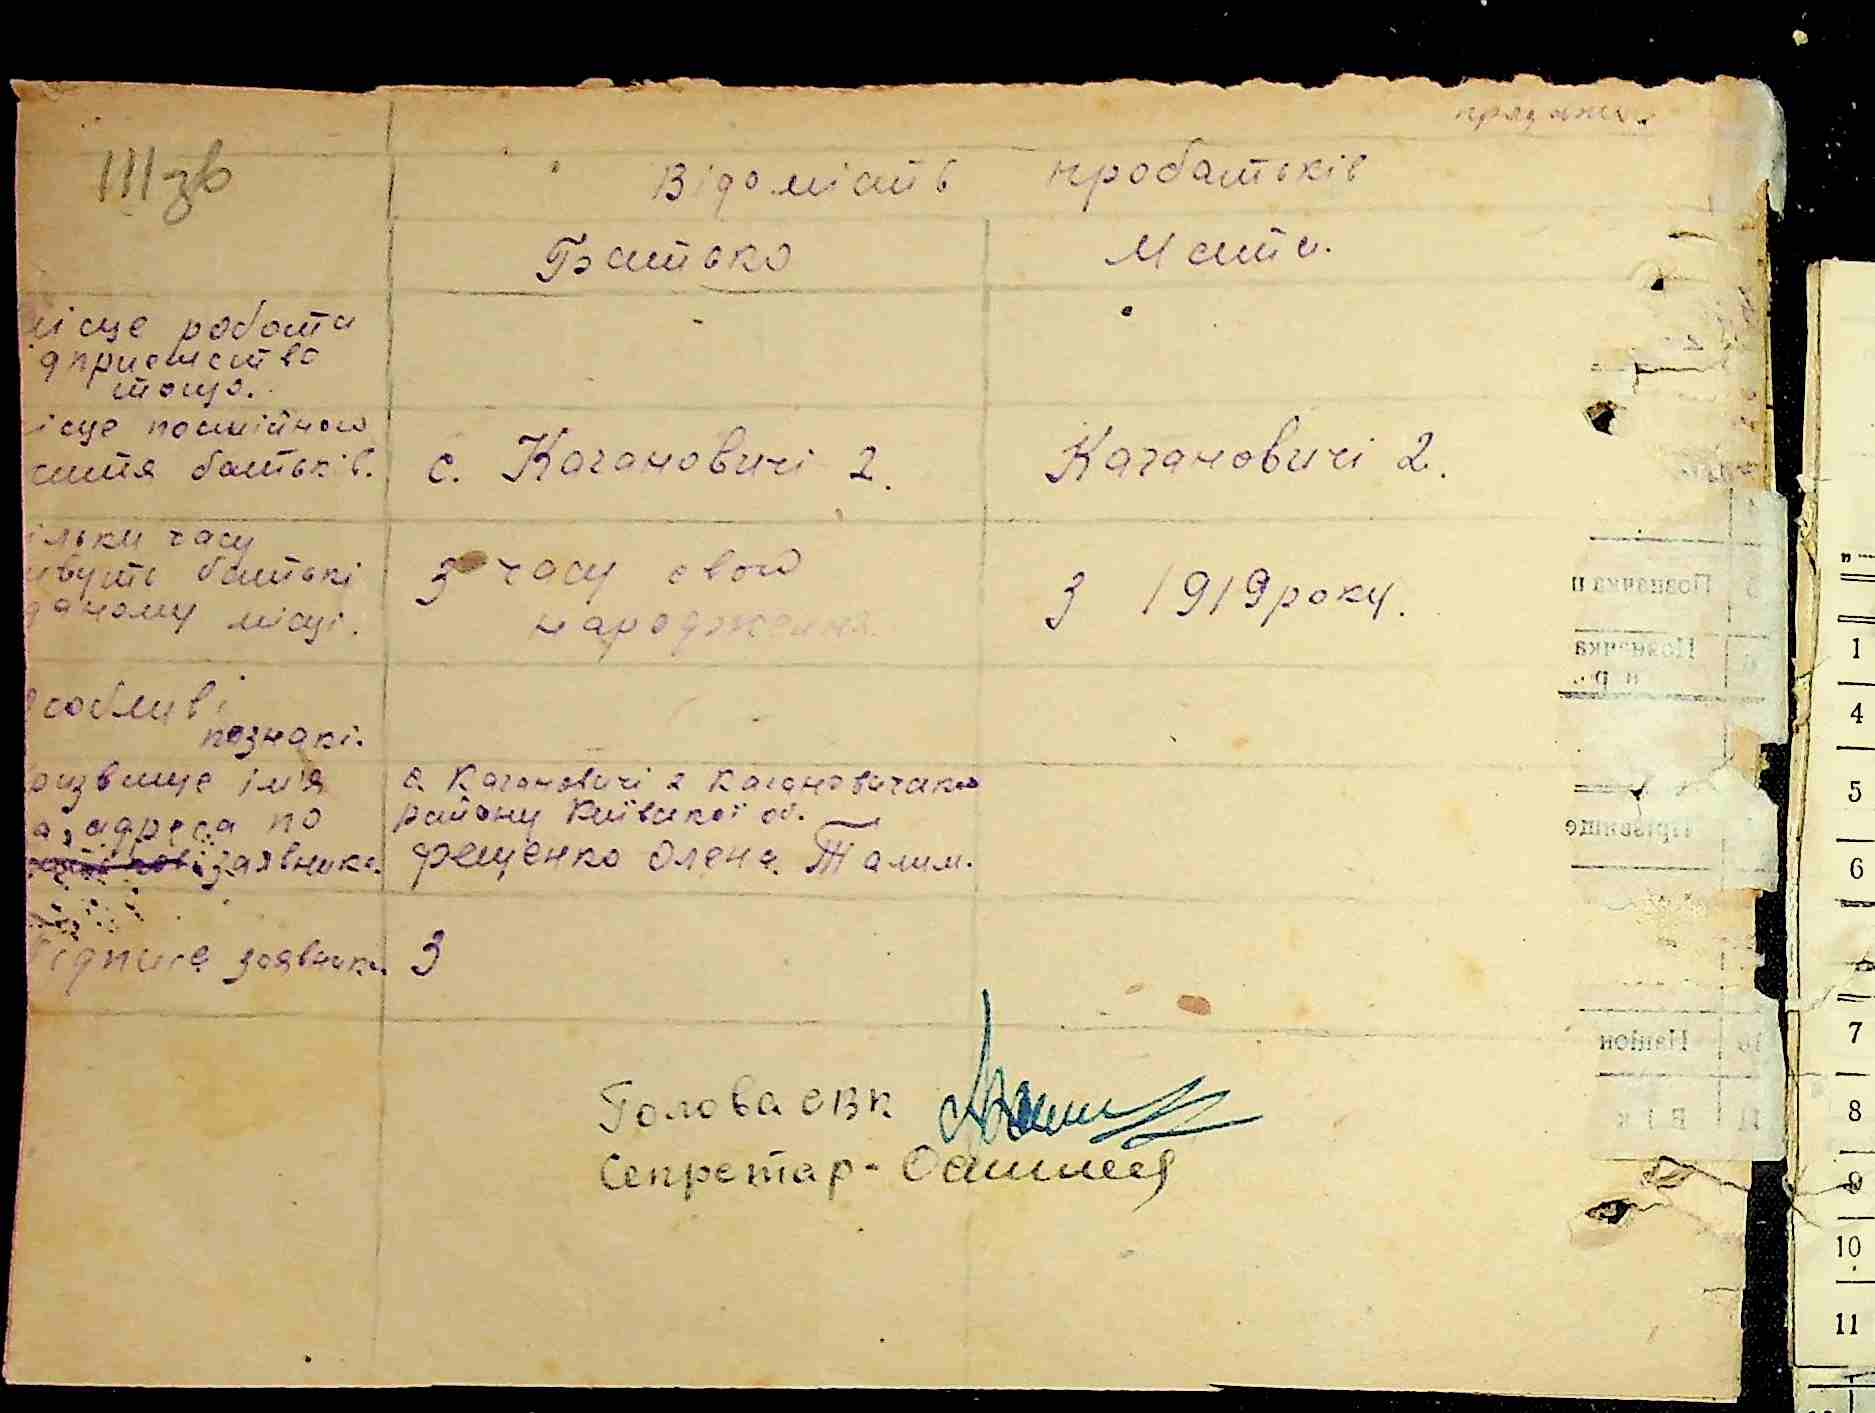 III зв
Відомість про батьків
Батько Мати.
місце роботи
дприємство
тощо.
ісце постійного
життя батьків.
с. Кагановичі 2.
Кагановичі 2.
ільки часу
ивуть батькі
даному місці.
З часу свого
народження.
З 1919 року.
особливі
познакі.
різвище ім'я
адреса по
заявника.
с. Кагановичі 2 Кагановичског
району Київської об.
Фещенко Олена Талим.
Підписе заявник. З
Голова СВК
Секретар -
Позначка п
Позначка
п р.
Прізвище
Націон
11 Вік
1
4
5
6
7
8
9
10
11